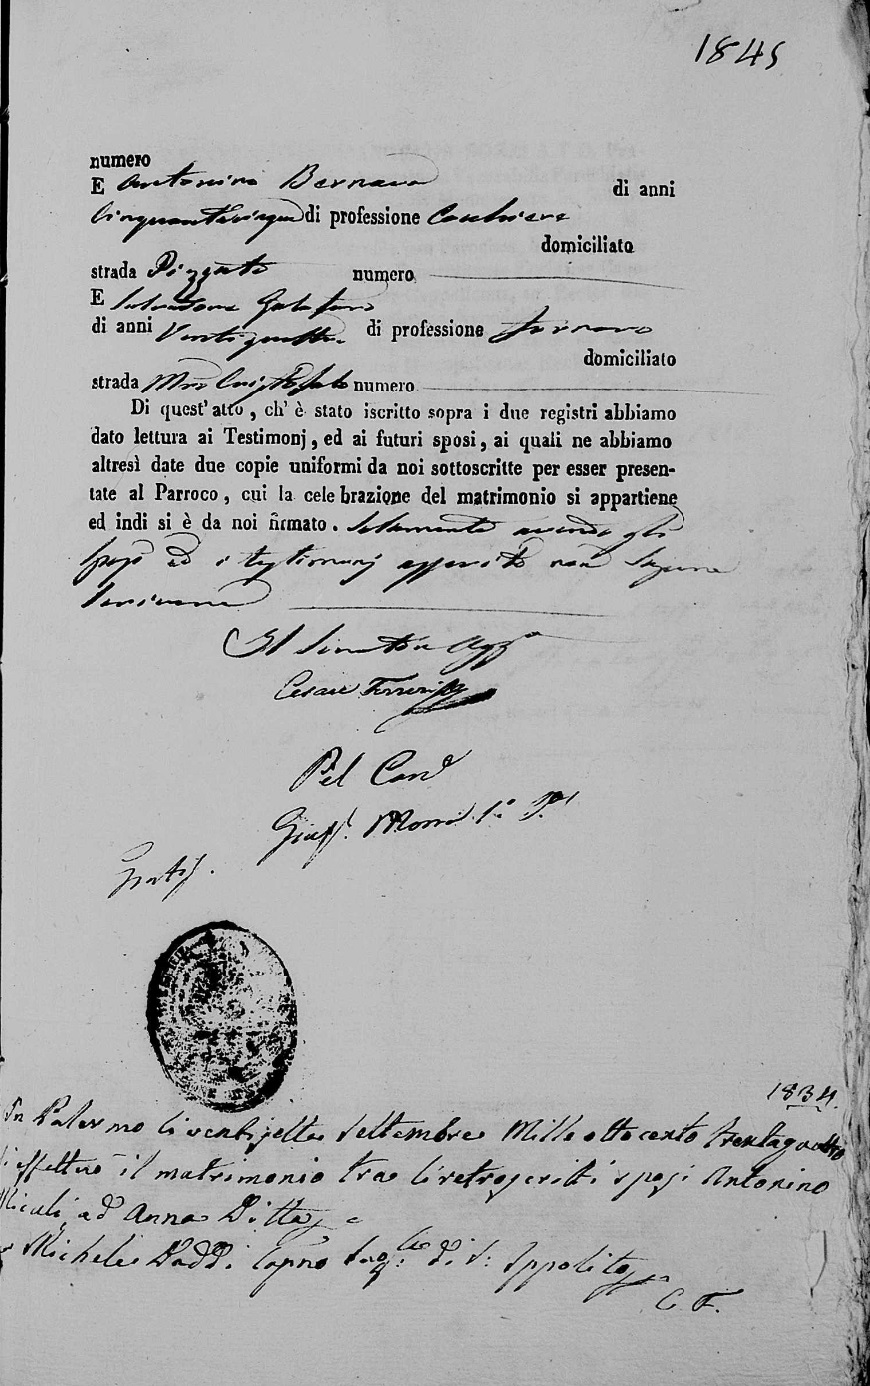 1845
numero
E Antonino Bernava di anni
Cinquantacinque di professione Cocchiere
domiciliato
strada Pizzuto numero
E Salvatore
di anni Ventiquattro di professione Fornaro
domiciliato
strada numero
Di quest' atto, ch' è stato iscritto sopra i due registri abbiamo
dato lettura ai Testimonj, ed ai futuri sposi, ai quali ne abbiamo
altresì date due copie uniformi da noi sottoscritte per esser presen-
tate al Parroco, cui la cele brazione del matrimonio si appartiene
ed indi si è da noi firmato. Solamente avendo gli
sposi ed i testimonj asserito non sapere
scrivere
Il Senatore
Cesare
Pel Canc
1834.
In Palermo li ventisette Settembre Mille ottocento trentaquattro
si effettuò il matrimonio tra li retroscritti sposi Antonino
Miceli ad Anna Ditta
Michele Daddi di S: Ippolito
C. F.